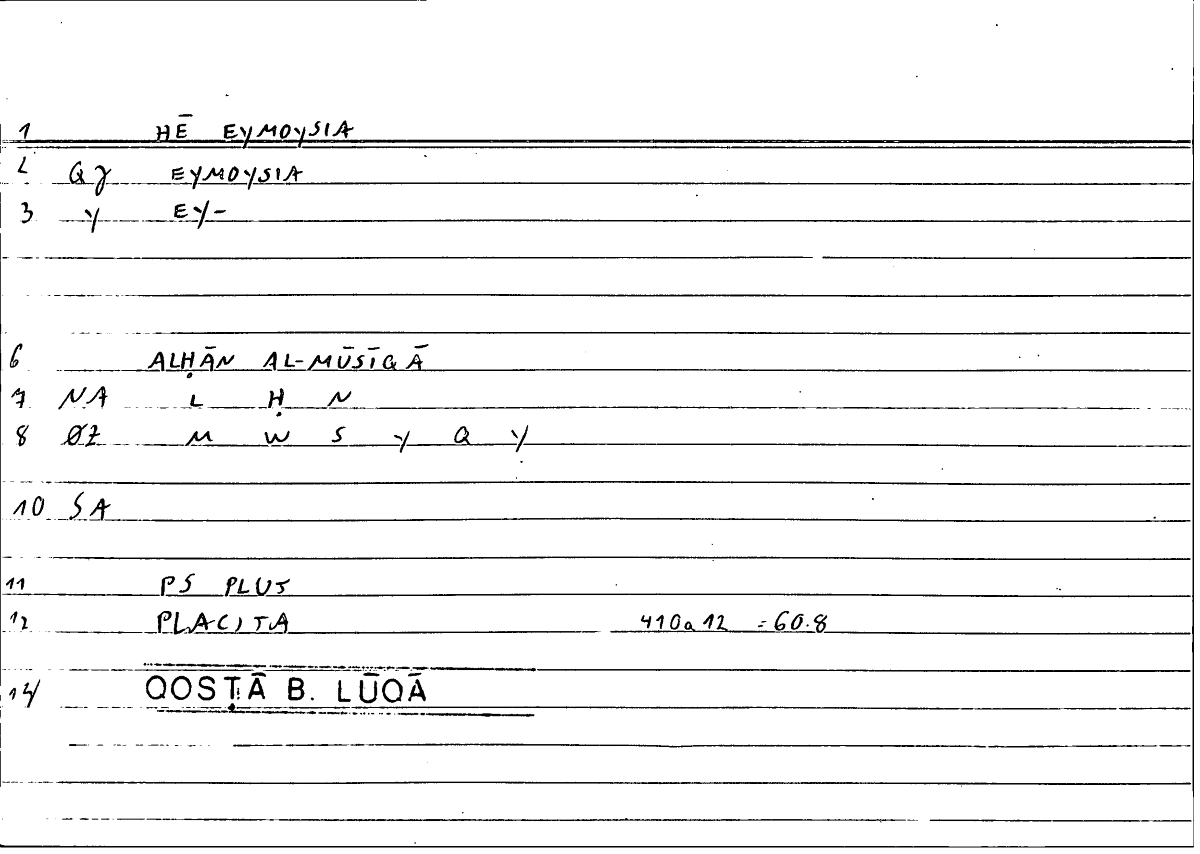 1 HĒ EYMOYSIA
2 Qγ EYMOYSIA
3 Y EY-
6 ALḤĀN AL-MŪSĪQĀ
7 NA L Ḥ N
8 ØZ M W S Y Q Y
10 SA
11 PS PLUT
12 PLACITA 410a12 = 60.8
14 QOSṬĀ B. LŪQĀ